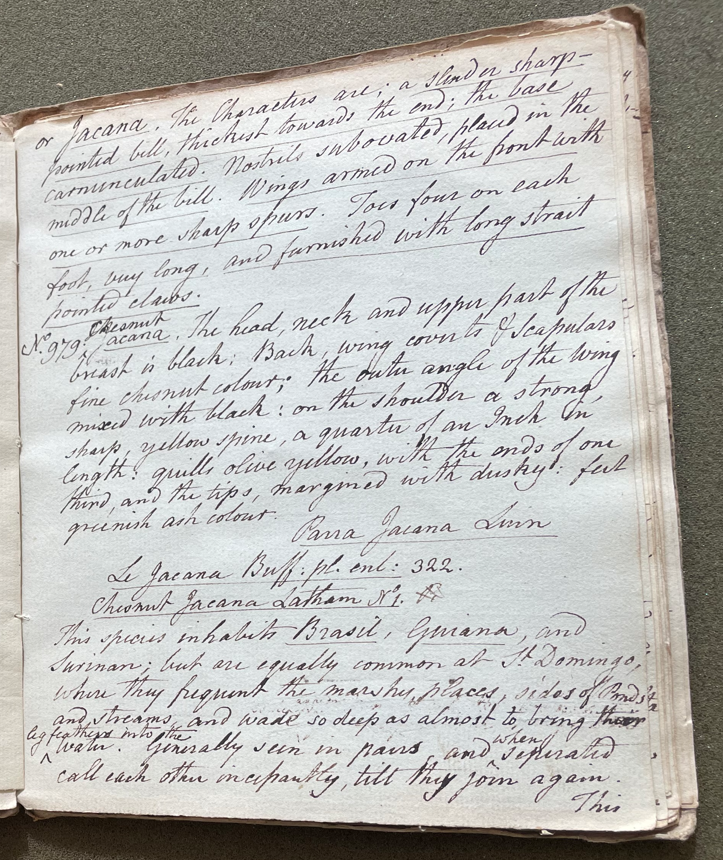 or Jacana. The Characters are; a slender sharp-
pointed bill, thickest towards the end; the base
carnunculated. Nostrils subovated, placed in the
middle of the bill. Wings armed on the front with
one or more sharp spurs. Toes four on each
foot, very long, and furnished with long strait
pointed claws.
Chesnut
No. 979. Jacana. The head, neck and upper part of the
breast is black: Back, wing coverts & Scapulars
fine chesnut colour; the outer angle of the wing
mixed with black: on the shoulder a strong,
sharp, yellow spine, a quarter of an Inch in
length: quills olive yellow, with the ends of one
third, and the tips, margined with dusky: feet
greenish ash colour.
Parra Jacana Linn
Le Jacana Buff: pl. enl: 322.
Chesnut Jacana Latham No. 1.
This species inhabits Brasil, Guiana, and
Surinan; but are equally common at St Domingo,
where they frequent the marshy places, sides of Ponds
and streams, and wade so deep as almost to bring their
leg feathers into the
water. Generally seen in pairs and when seperated
call each other incessantly, till they join again.
This